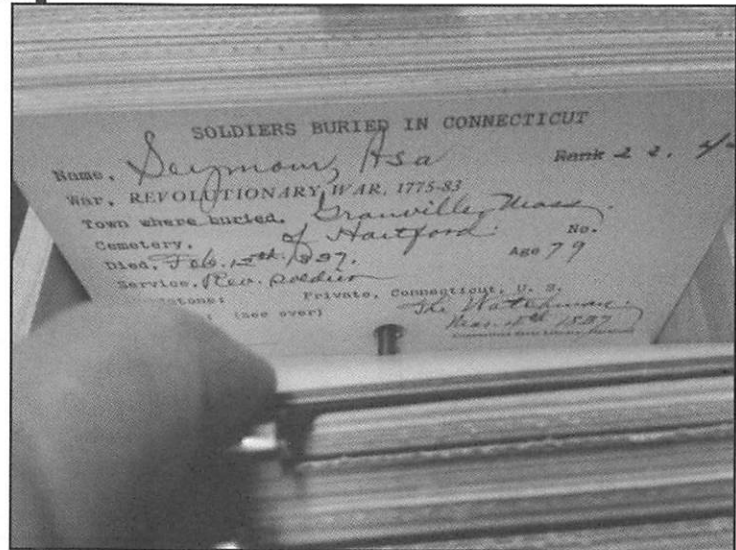 SOLDIERS BURIED IN CONNECTICUT
Name, Seymour, Asa Rank
War, REVOLUTIONARY WAR, 1775-83
Town where buried. Granville, Mass.
Cemetery, of Hartford. No.
Died, Feb. 1837. Age 79
Service, Rev. Soldier
Private, Connecticut, U. S.
(see over) The Watchman.
1837